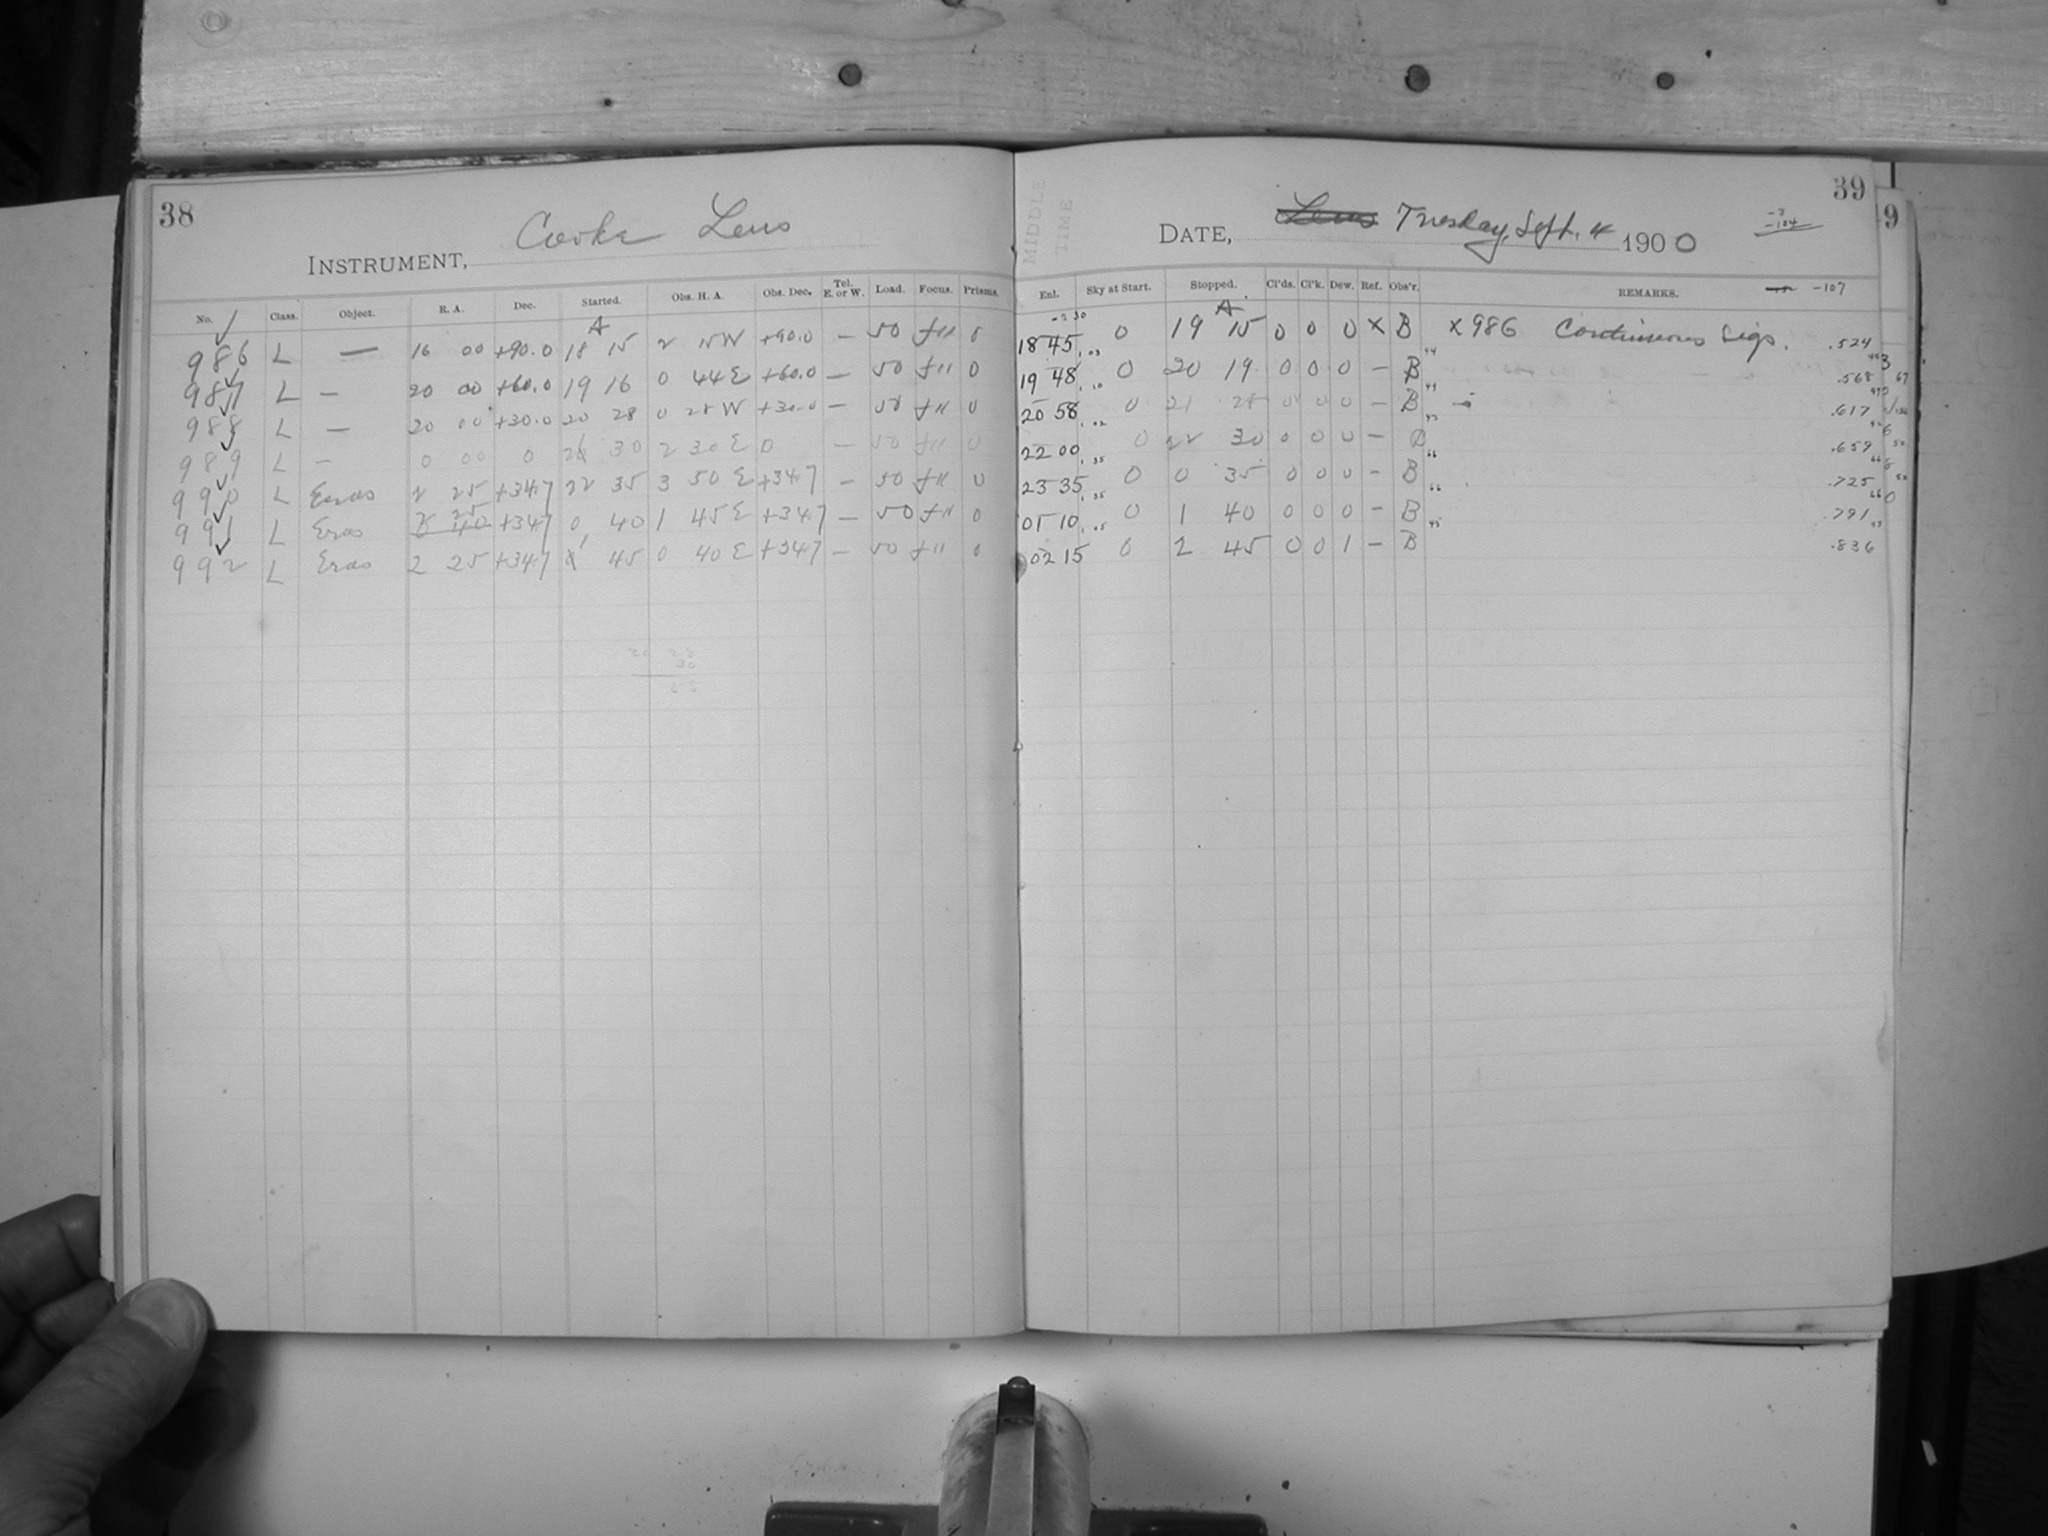 38
Cooke Lens
INSTRUMENT,
No. Class. Object. R. A. Dec. Started. Obs. H. A. Obs. Dec. Tel. E. or W. Load. Focus. Prisms.
A
986 L — 16 00 +90.0 18 15 2 15 W +90.0 — 50 f11 0
987 L — 20 00 +60.0 19 16 0 44 E +60.0 — 50 f11 0
988 L — 20 00 +30.0 20 28 0 28 W +30.0 — 50 f11 0
989 L — 0 00 0 30 2 30 E 0 — 50 f11 0
990 L Eros 2 25 +34.7 22 35 3 50 E +34.7 — 50 f11 0
991 L Eros 25 +34.7 0 40 1 45 E +34.7 — 50 f11 0
992 L Eros 2 25 +34.7 45 0 40 E +34.7 — 50 f11 0
20 28
30
58
39
9
MIDDLE TIME
DATE, Lens Tuesday, Sept. 4 1900
-104
Enl. Sky at Start. Stopped. Cl'ds. Cl'k. Dew. Ref. Obs'r. REMARKS. -107
-2 30
A
18 45 0 19 15 0 0 0 X B X 986 Continuous Sigs. .524
19 48 0 20 19 0 0 0 — B .568
20 58 0 21 28 0 0 0 — B .617
22 00 0 22 30 0 0 0 — B .659
23 35 0 0 35 0 0 0 — B .725
01 10 0 1 40 0 0 0 — B .791
02 15 0 2 45 0 0 1 — B .836